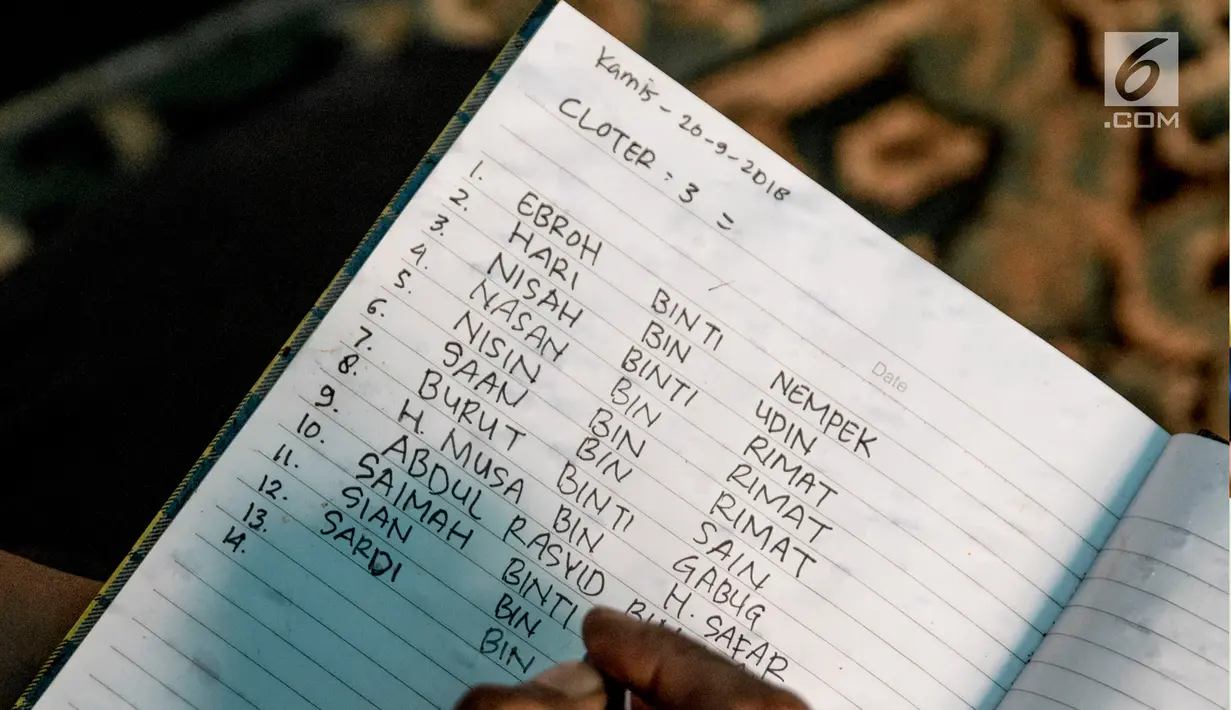 Kamis - 20-9-2018
CLOTER - 3 =
Date
1. EBROH BINTI NEMPEK
2. HARI BIN UDIN
3. NISAH BINTI RIMAT
4. NASAN BIN RIMAT
5. NISIN BIN RIMAT
6. SAAN BIN SAIN
7. BURUT BINTI GABUG
8. H. MUSA BIN H. SAFAR
9. ABDUL RASYID BIN
10. SAIMAH BINTI
11. SIAN BIN
12. SARDI BIN
13.
14.
6
.COM